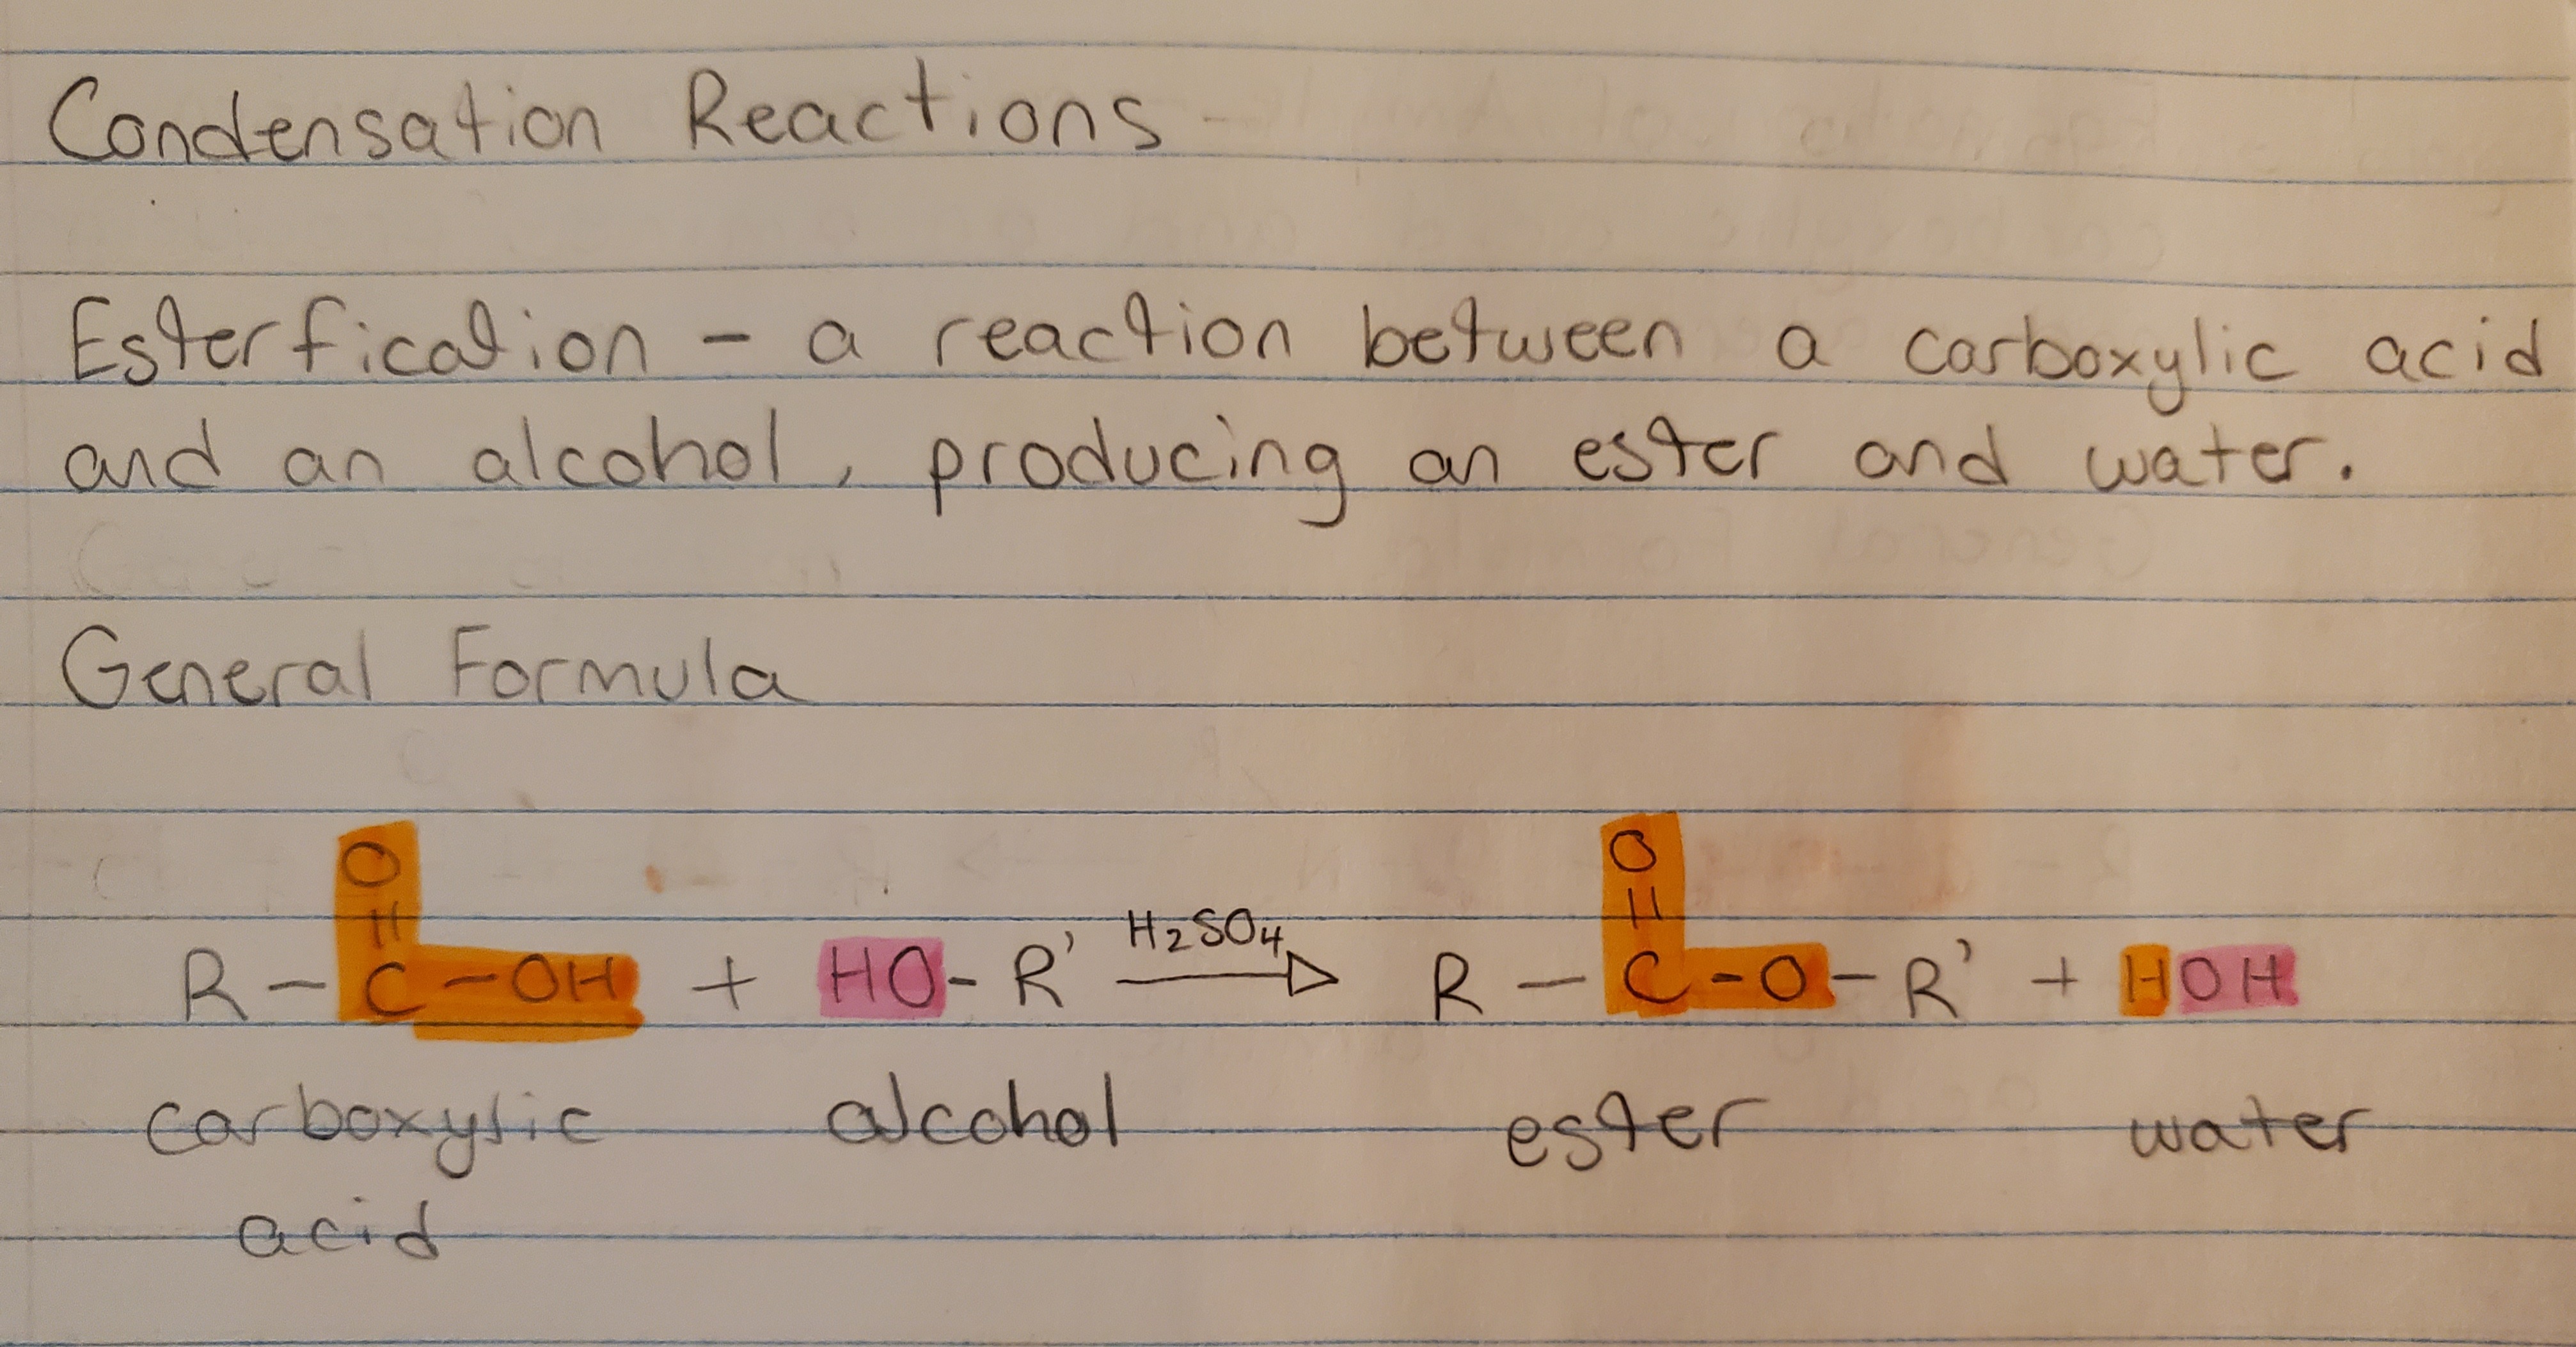 Condensation Reactions
Esterfication - a reaction between a carboxylic acid
and an alcohol, producing an ester and water.
General Formula
O
||
R - C - OH + HO - R' H₂SO₄ → R - C - O - R' + HOH
O
||
carboxylic alcohol ester water
acid